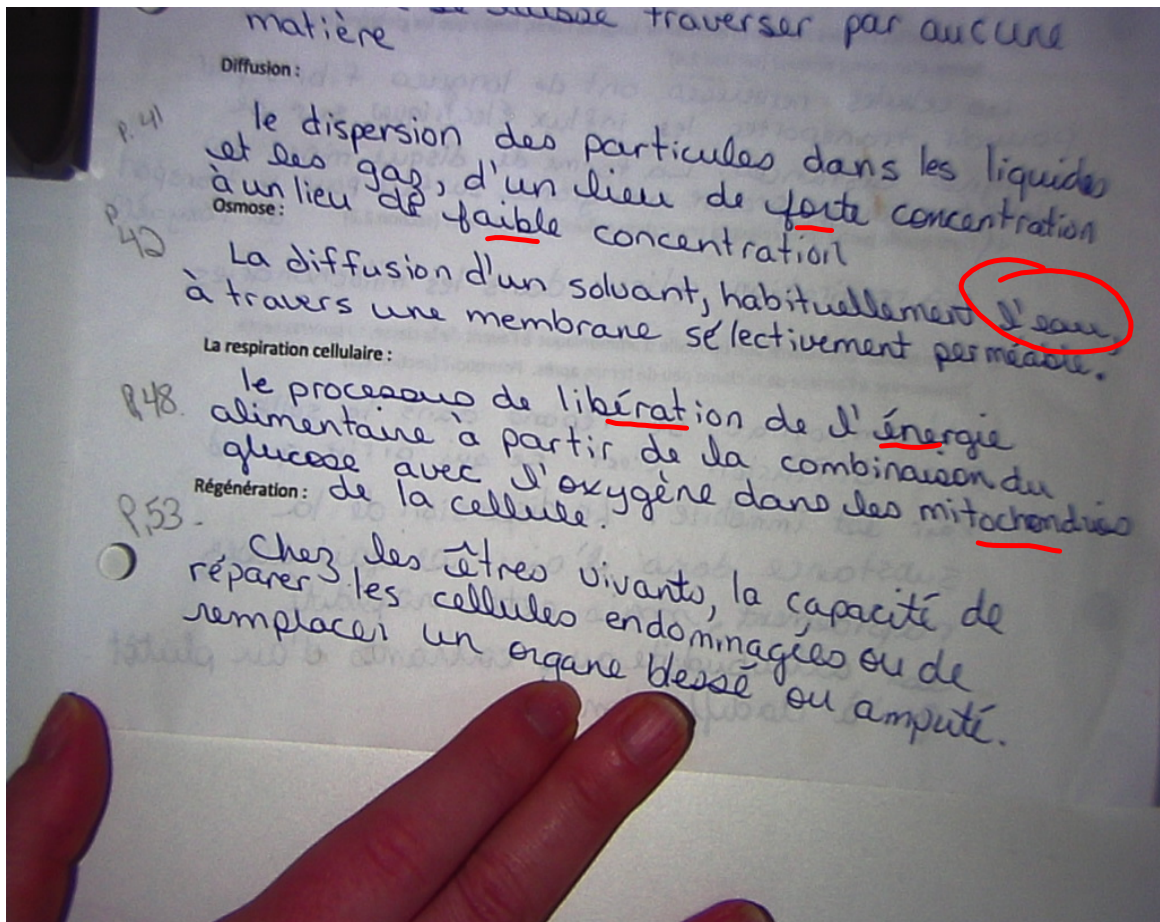 traverser par aucune
matière
Diffusion :
p.41
le dispersion des particules dans les liquides
et les gaz, d'un lieu de forte concentration
à un lieu de faible concentration
Osmose :
p.42
La diffusion d'un solvant, habituellement l'eau,
à travers une membrane sélectivement perméable.
La respiration cellulaire :
P.48.
le processus de libération de l'énergie
alimentaire à partir de la combinaison du
glucose avec l'oxygène dans les mitochondries
de la cellule
Régénération :
P.53-
Chez les êtres vivants, la capacité de
réparer les cellules endommagées ou de
remplacer un organe blessé ou amputé.